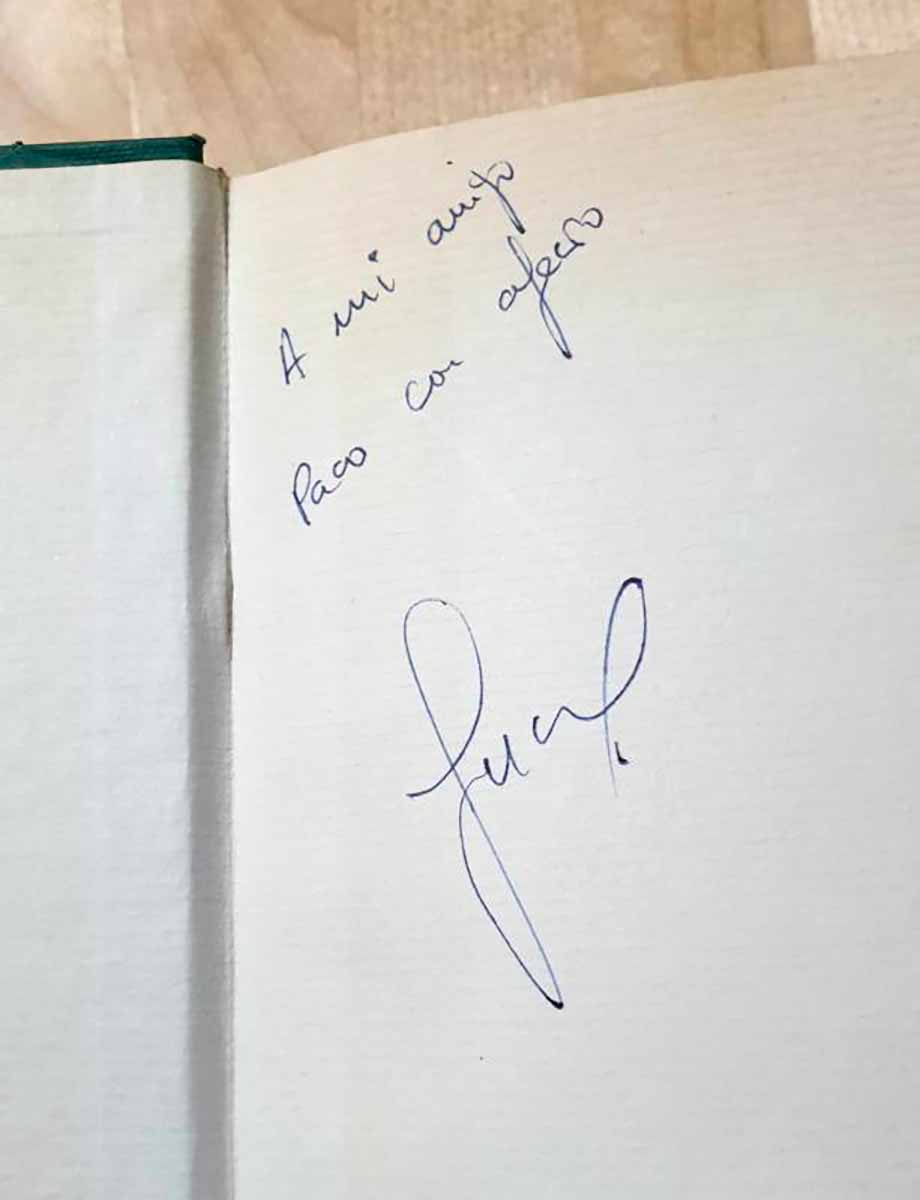 A mi amigo
Paco con afecto